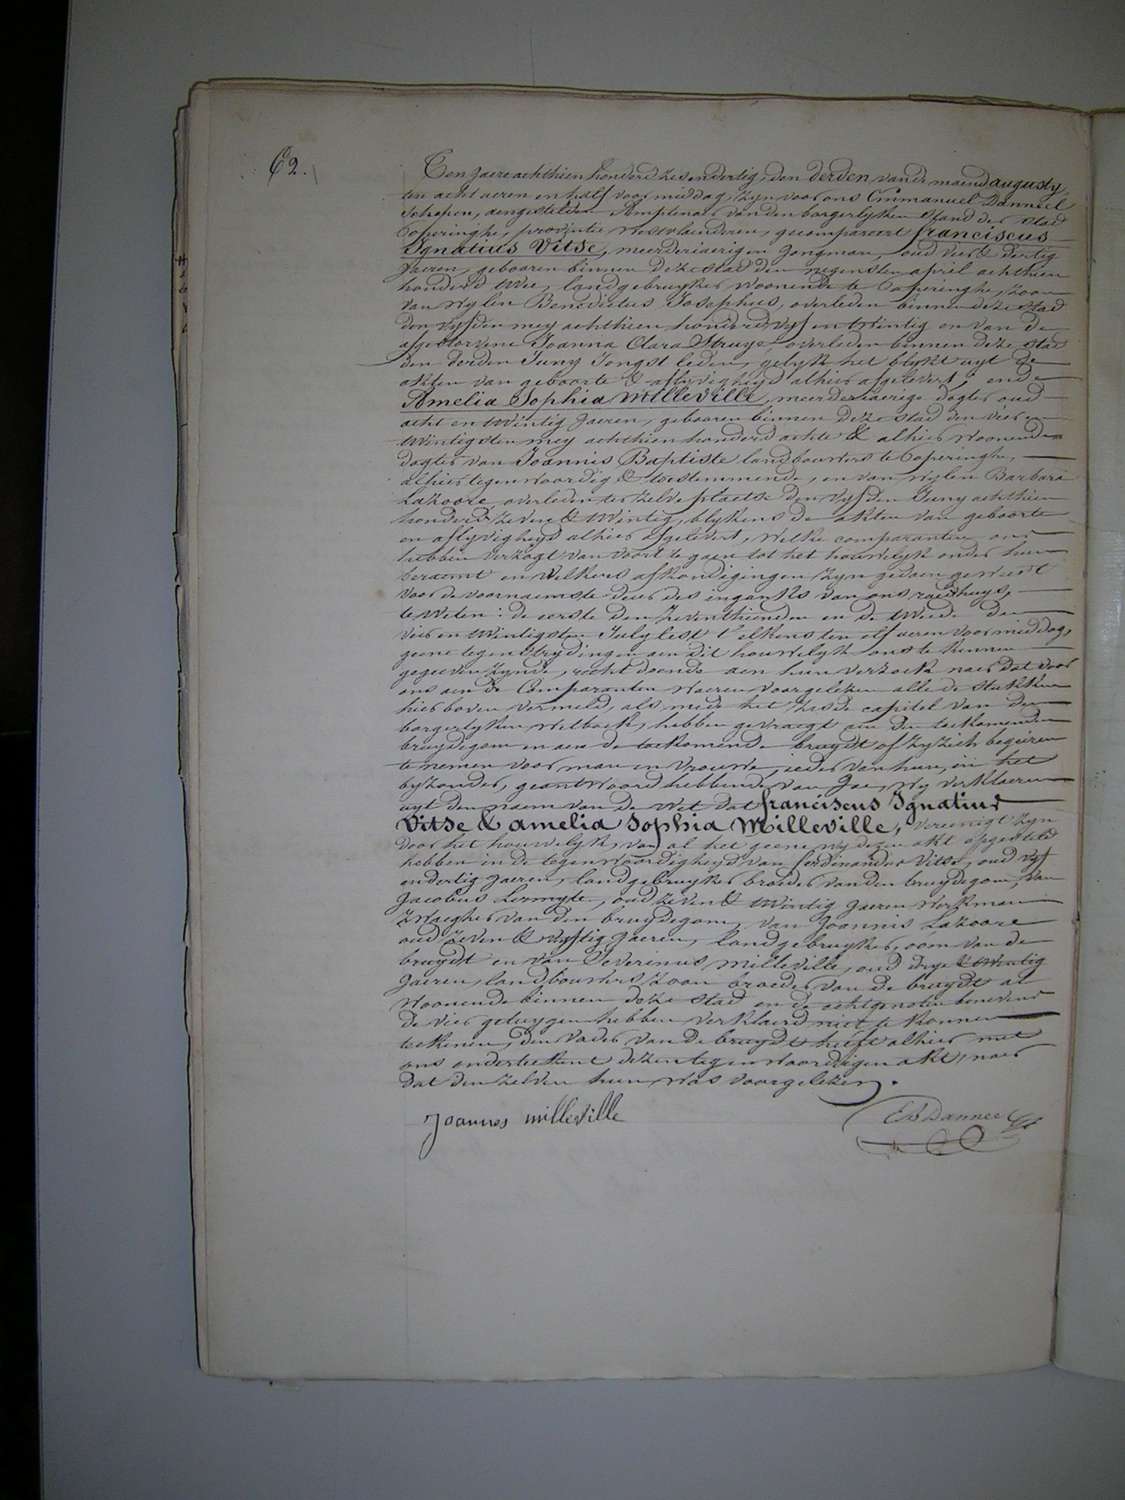 62.
Ten jaere achthien honderd zesendertig, den derden van de maend augusty,
ten acht ueren en half voor middag, zyn voor ons Emmanuel Danneel
Schepen, aengestelden Amptenaer van den borgerlyken stand der stad
Poperinghe, provintie Westvlaenderen, gecompareert franciscus
Ignatius Vitse, meerderjaerigen jongman, oud vier & dertig
Jaeren, gebooren binnen deze stad den negensten april achthien
honderd twee, landgebruyker woonende te Poperinghe, zoon
van wylen Benedictus Josephus, overleden binnen deze stad
den vyfden mey achthien honderd vyf en twintig en van de
afgestorvene Joanna Clara Struye overleden binnen deze stad
den derden Juny Jongst leden, gelyk het blykt uyt de
akten van geboorte & aflyvigheyd alhier afgelevert; ende
Amelia Sophia Milleville, meerderjaerige dogter oud
acht en twintig Jaeren, gebooren binnen deze stad den vier en
twintigsten mey achthien honderd achte & alhier woonende
dogter van Joannis Baptiste landbouwers te Poperinghe,
alhier tegenwoordig & toestemmende, en van wylen Barbara
Lazoore, overleden ter zelve plaetse den vyfden Juny achthien
honderd zeven & twintig, blykens de akten van geboorte
en aflyvigheyd alhier afgelevert, welke comparanten ons
hebben verzogt van voort te gaen tot het houwelyk onder hun
beraemt en welkers afkondigingen zyn gedaen geweest
voor de voornaemste deur des ingangs van ons raedhuys,
te weten: de eerste den zeventhienden en de tweede den
vier en twintigsten July lest t'elkens ten elf ueren voor middag,
geene tegenstrydingen aen dit houwelyk ons te kennen
gegeven zynde, recht doende aen hun verzoek naer dat door
ons aen de Comparanten waeren voorgelezen alle de stukken
hier boven vermeld, als mede het zesde capitel van den
borgerlyken wetboek, hebben gevraegt aen den toekomenden
bruydegom en aen de toekomende bruydt of zy zich begeiren
te nemen voor man en vrouwe, ieder van hun, in het
byzonder, geantwoord hebbende van Jae, wy verklaeren
uyt den naem van de wet dat franciscus Ignatius
Vitse & amelia Sophia Milleville, vereenigt zyn
door het houwelyk, van al het geene wy dezen akt opgesteld
hebben in de tegenwoordigheyd van ferdinandus Vitse, oud vyf
en dertig jaeren, landgebruyker broeder van den bruydegom, van
Jacobus Lermyte, oud zeven & twintig Jaeren werkman
zwaegher van den bruydegom, van Joannis Lazoore
oud zeven & vyftig Jaeren, landgebruyker, oom van de
bruydt en van Severinus Milleville, oud drye & twintig
Jaeren, landbouwers zoon broeder van de bruydt al
woonende binnen deze stad en de echtgenoten benevens
de vier getuygen hebben verklaerd niet te konnen
teekenen, den vader van de bruydt heeft alhier met
ons onderteekent dezen tegenwoordigen akt, naer
dat den zelven hun was voorgelezen.
Joannes milleville
EB Danneel